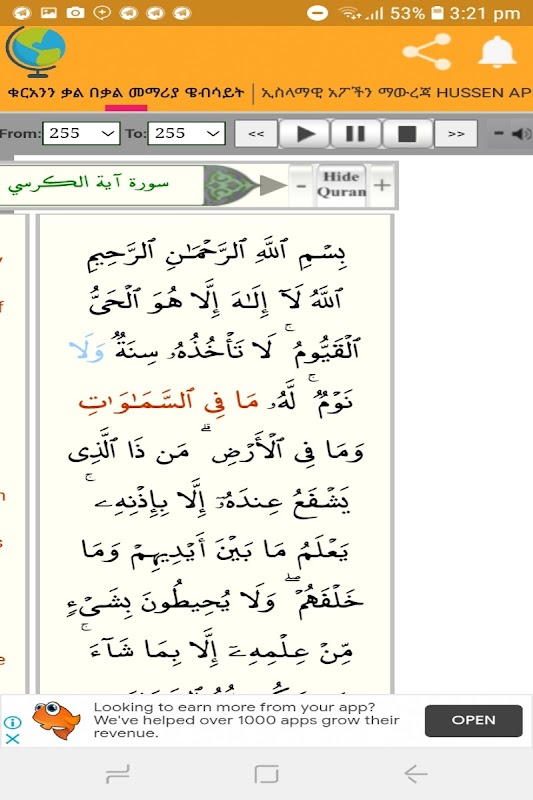 53% 3:21 pm
ቁርአንን ቃል በቃል መማሪያ ዌብሳይት | ኢስላማዊ አፖችን ማውረጃ HUSSEN AP
From: 255 To: 255 << >>
سورة آية الكرسي - Hide Quran +
بِسْمِ ٱللَّهِ ٱلرَّحْمَـٰنِ ٱلرَّحِيمِ
ٱللَّهُ لَآ إِلَـٰهَ إِلَّا هُوَ ٱلْحَىُّ
ٱلْقَيُّومُ ۚ لَا تَأْخُذُهُۥ سِنَةٌ وَلَا
نَوْمٌ ۚ لَّهُۥ مَا فِى ٱلسَّمَـٰوَٰتِ
وَمَا فِى ٱلْأَرْضِ ۗ مَن ذَا ٱلَّذِى
يَشْفَعُ عِندَهُۥٓ إِلَّا بِإِذْنِهِۦ ۚ
يَعْلَمُ مَا بَيْنَ أَيْدِيهِمْ وَمَا
خَلْفَهُمْ ۖ وَلَا يُحِيطُونَ بِشَىْءٍ
مِّنْ عِلْمِهِۦٓ إِلَّا بِمَا شَآءَ ۚ
Looking to earn more from your app?
We've helped over 1000 apps grow their
revenue.
OPEN